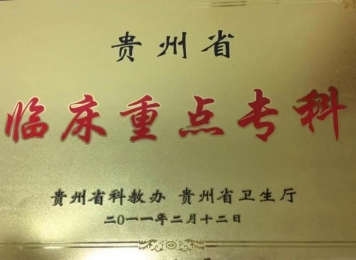 贵州省
临床重点专科
贵州省科教办 贵州省卫生厅
二0一一年二月十二日